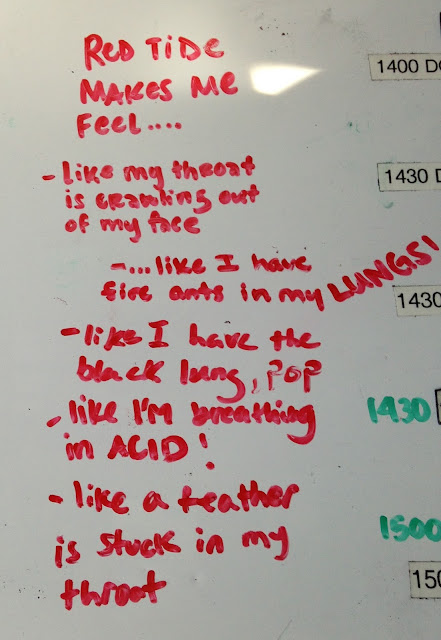 RED TIDE
MAKES ME
FEEL....
1400 DO
- like my throat
is crawling out
of my face
1430 D
-...like I have
fire ants in my LUNGS!
1430
- like I have the
black lung, POP
- like I'M breathing
in ACID!
1430
- like a feather
is stuck in my
throat
1500
150